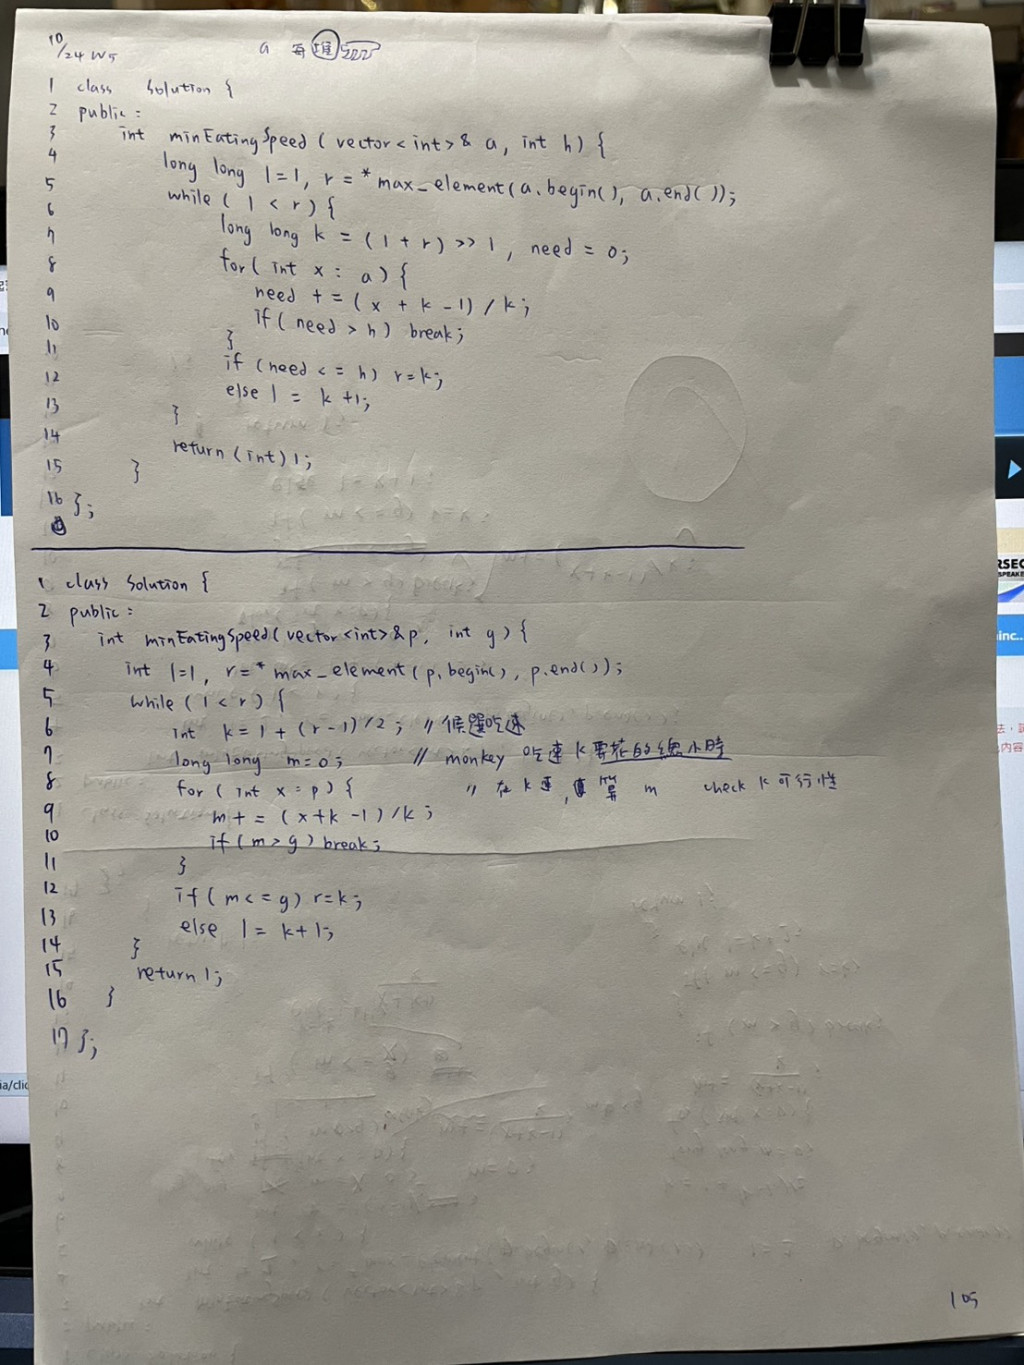 10/24 W5
a 每堆
1 class Solution {
2 public:
3 int minEatingSpeed (vector<int>& a, int h) {
4 long long l=1, r = *max_element(a.begin(), a.end());
5 while ( l < r) {
6 long long k = (l + r) >> 1, need = 0;
7 for( int x : a) {
8 need += (x + k -1) / k;
9 if( need > h) break;
10 }
11 if (need <= h) r=k;
12 else l = k +1;
13 }
14 return (int) l;
15 }
16 };
1 class Solution {
2 public:
3 int minEatingSpeed(vector<int>&p, int g) {
4 int l=1, r=*max_element(p.begin(), p.end());
5 while (l<r) {
6 int k=l+(r-l)/2; // 候選吃速
7 long long m=0; // monkey 吃速k要花的總小時
8 for (int x:p) { // 在k速, 算 m check k可行性
9 m+=(x+k-1)/k;
10 if(m>g)break;
11 }
12 if(m<=g) r=k;
13 else l=k+1;
14 }
15 return l;
16 }
17 };
105